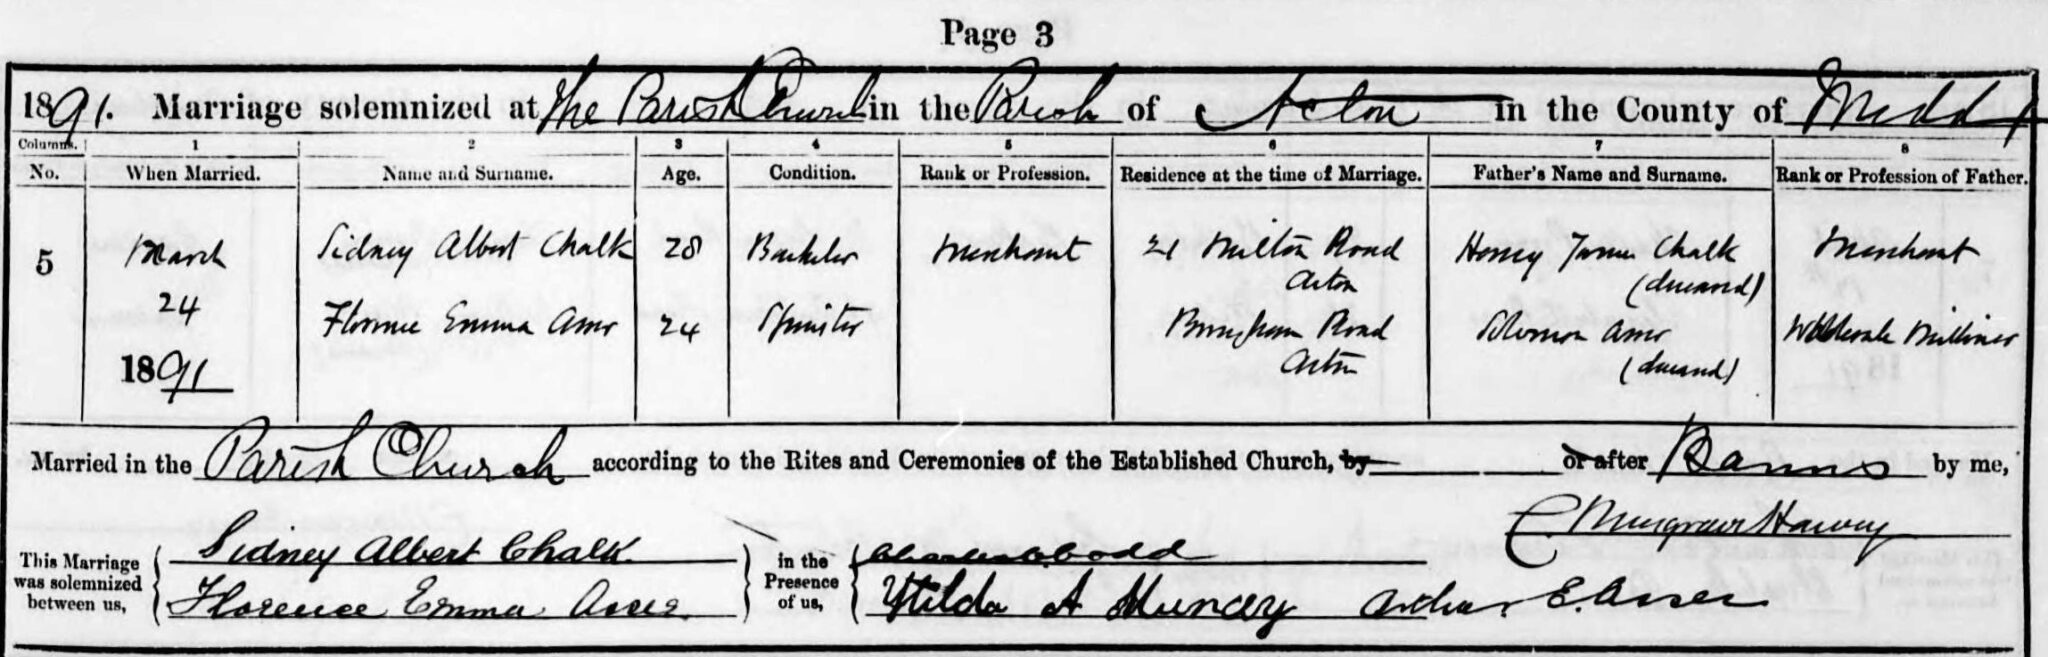 Page 3
1891. Marriage solemnized at The Parish Church in the Parish of Acton in the County of Middx
Columns. 1 2 3 4 5 6 7 8
No. When Married. Name and Surname. Age. Condition. Rank or Profession. Residence at the time of Marriage. Father's Name and Surname. Rank or Profession of Father.
5 March Sidney Albert Chalk 28 Bachelor Merchant 21 Milton Road Henry James Chalk Merchant
Acton (deceased)
24 Florence Emma 24 Spinster Road Solomon Wholesale Milliner
1891 Acton (deceased)
Married in the Parish Church according to the Rites and Ceremonies of the Established Church, by or after Banns by me,
C Musgrave Harvey
This Marriage was solemnized between us, Sidney Albert Chalk in the Presence of us,
Florence Emma Hilda A Muncey Arthur E.